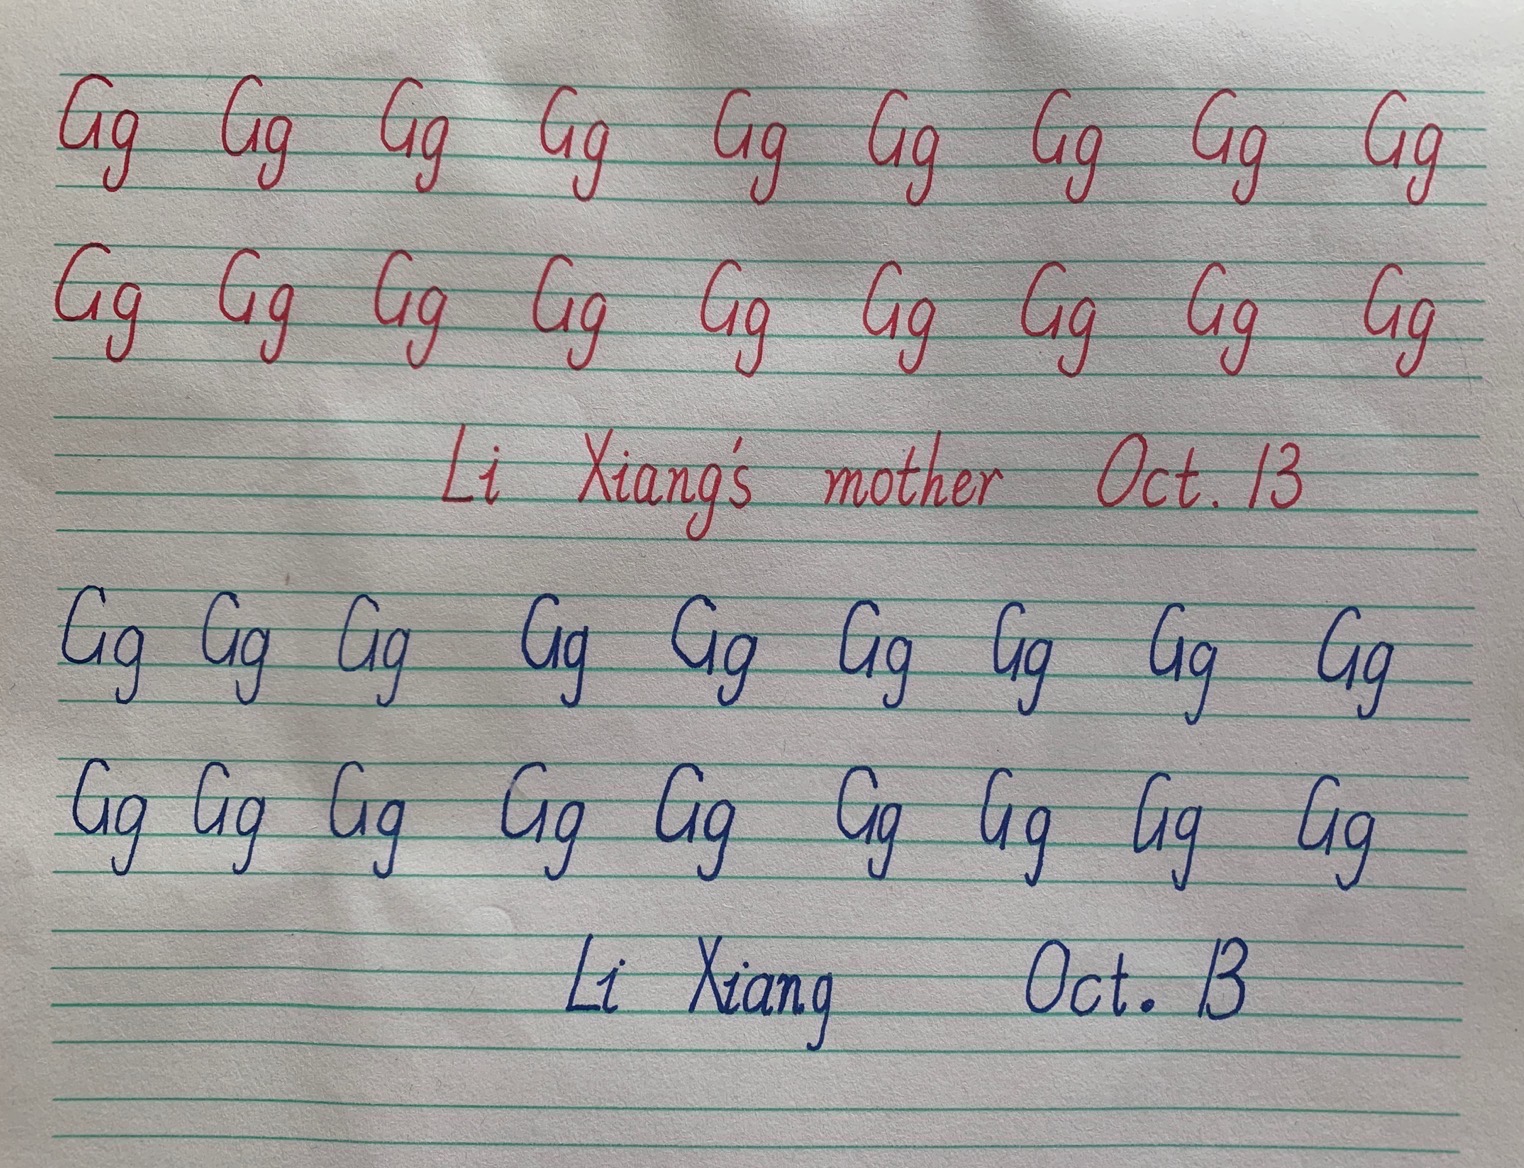 Gg Gg Gg Gg Gg Gg Gg Gg Gg
Gg Gg Gg Gg Gg Gg Gg Gg Gg
Li Xiang's mother Oct. 13
Gg Gg Gg Gg Gg Gg Gg Gg Gg
Gg Gg Gg Gg Gg Gg Gg Gg Gg
Li Xiang Oct. 13